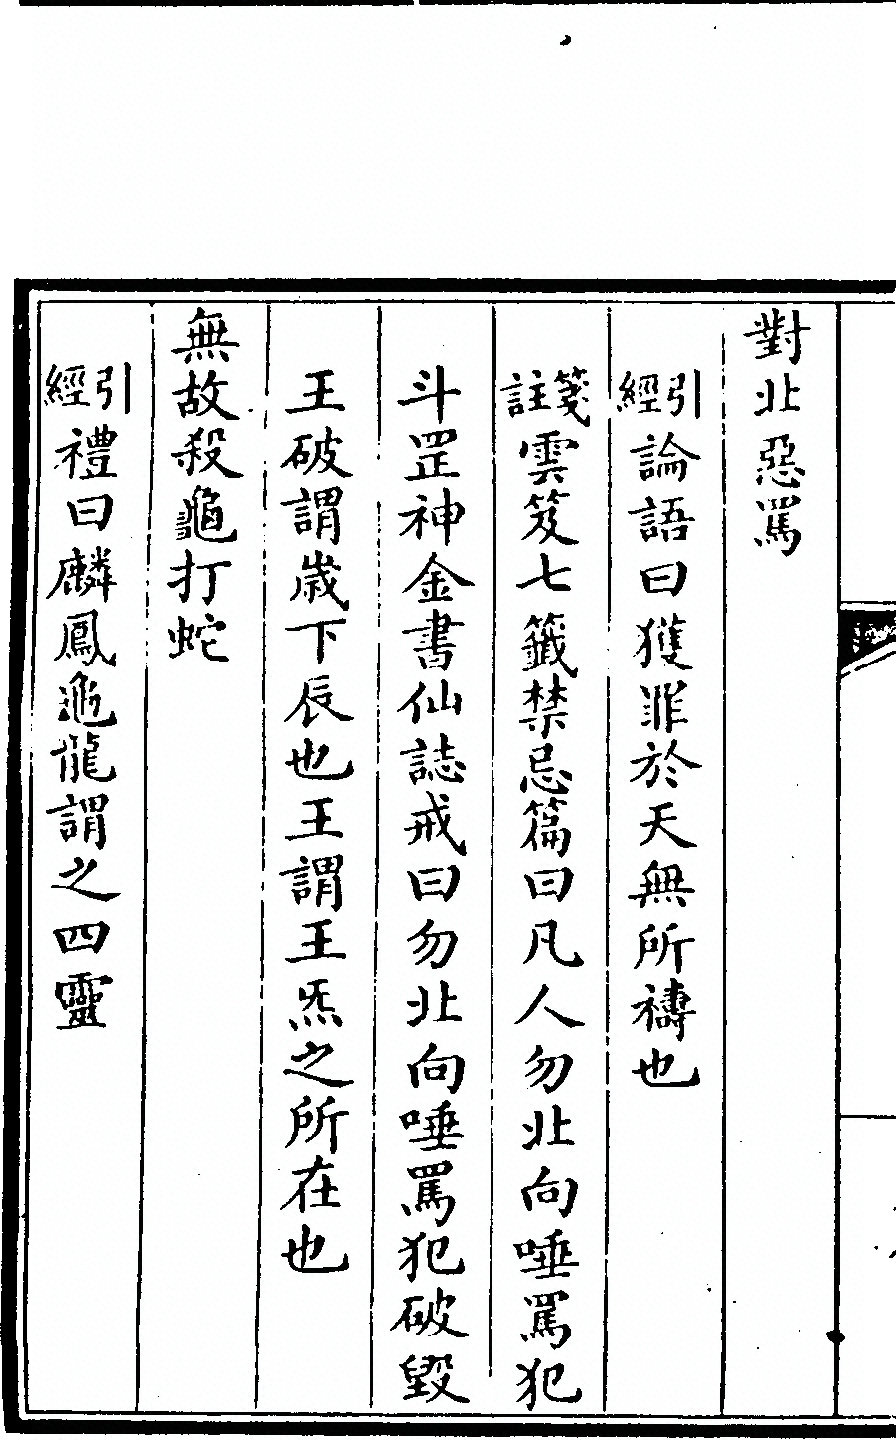 對北惡罵
引經論語曰獲罪於天無所禱也
箋註雲笈七籤禁忌篇曰凡人勿北向唾罵犯
斗罡神金書仙誌戒曰勿北向唾罵犯破毀
王破謂歲下辰也王謂王炁之所在也
無故殺龜打蛇
引經禮曰麟鳳龜龍謂之四靈